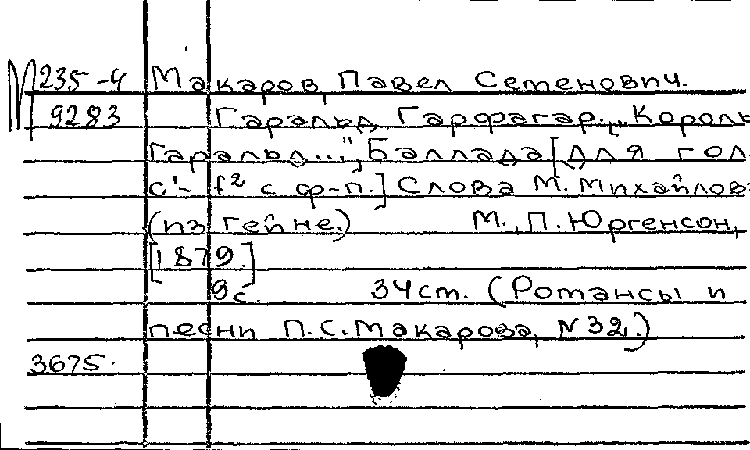 М 235-4 Макаров, Павел Семенович.
9283 Гаральд Гарфагар. „Король
Гаральд...", Баллада [для гол.
c¹- f² с ф-п.] Слова М. Михайлова
(из Гейне.) М., П. Юргенсон,
[1879.]
9 с. 34 ст. (Романсы и
песни П. С. Макарова, N 32.)
3675.